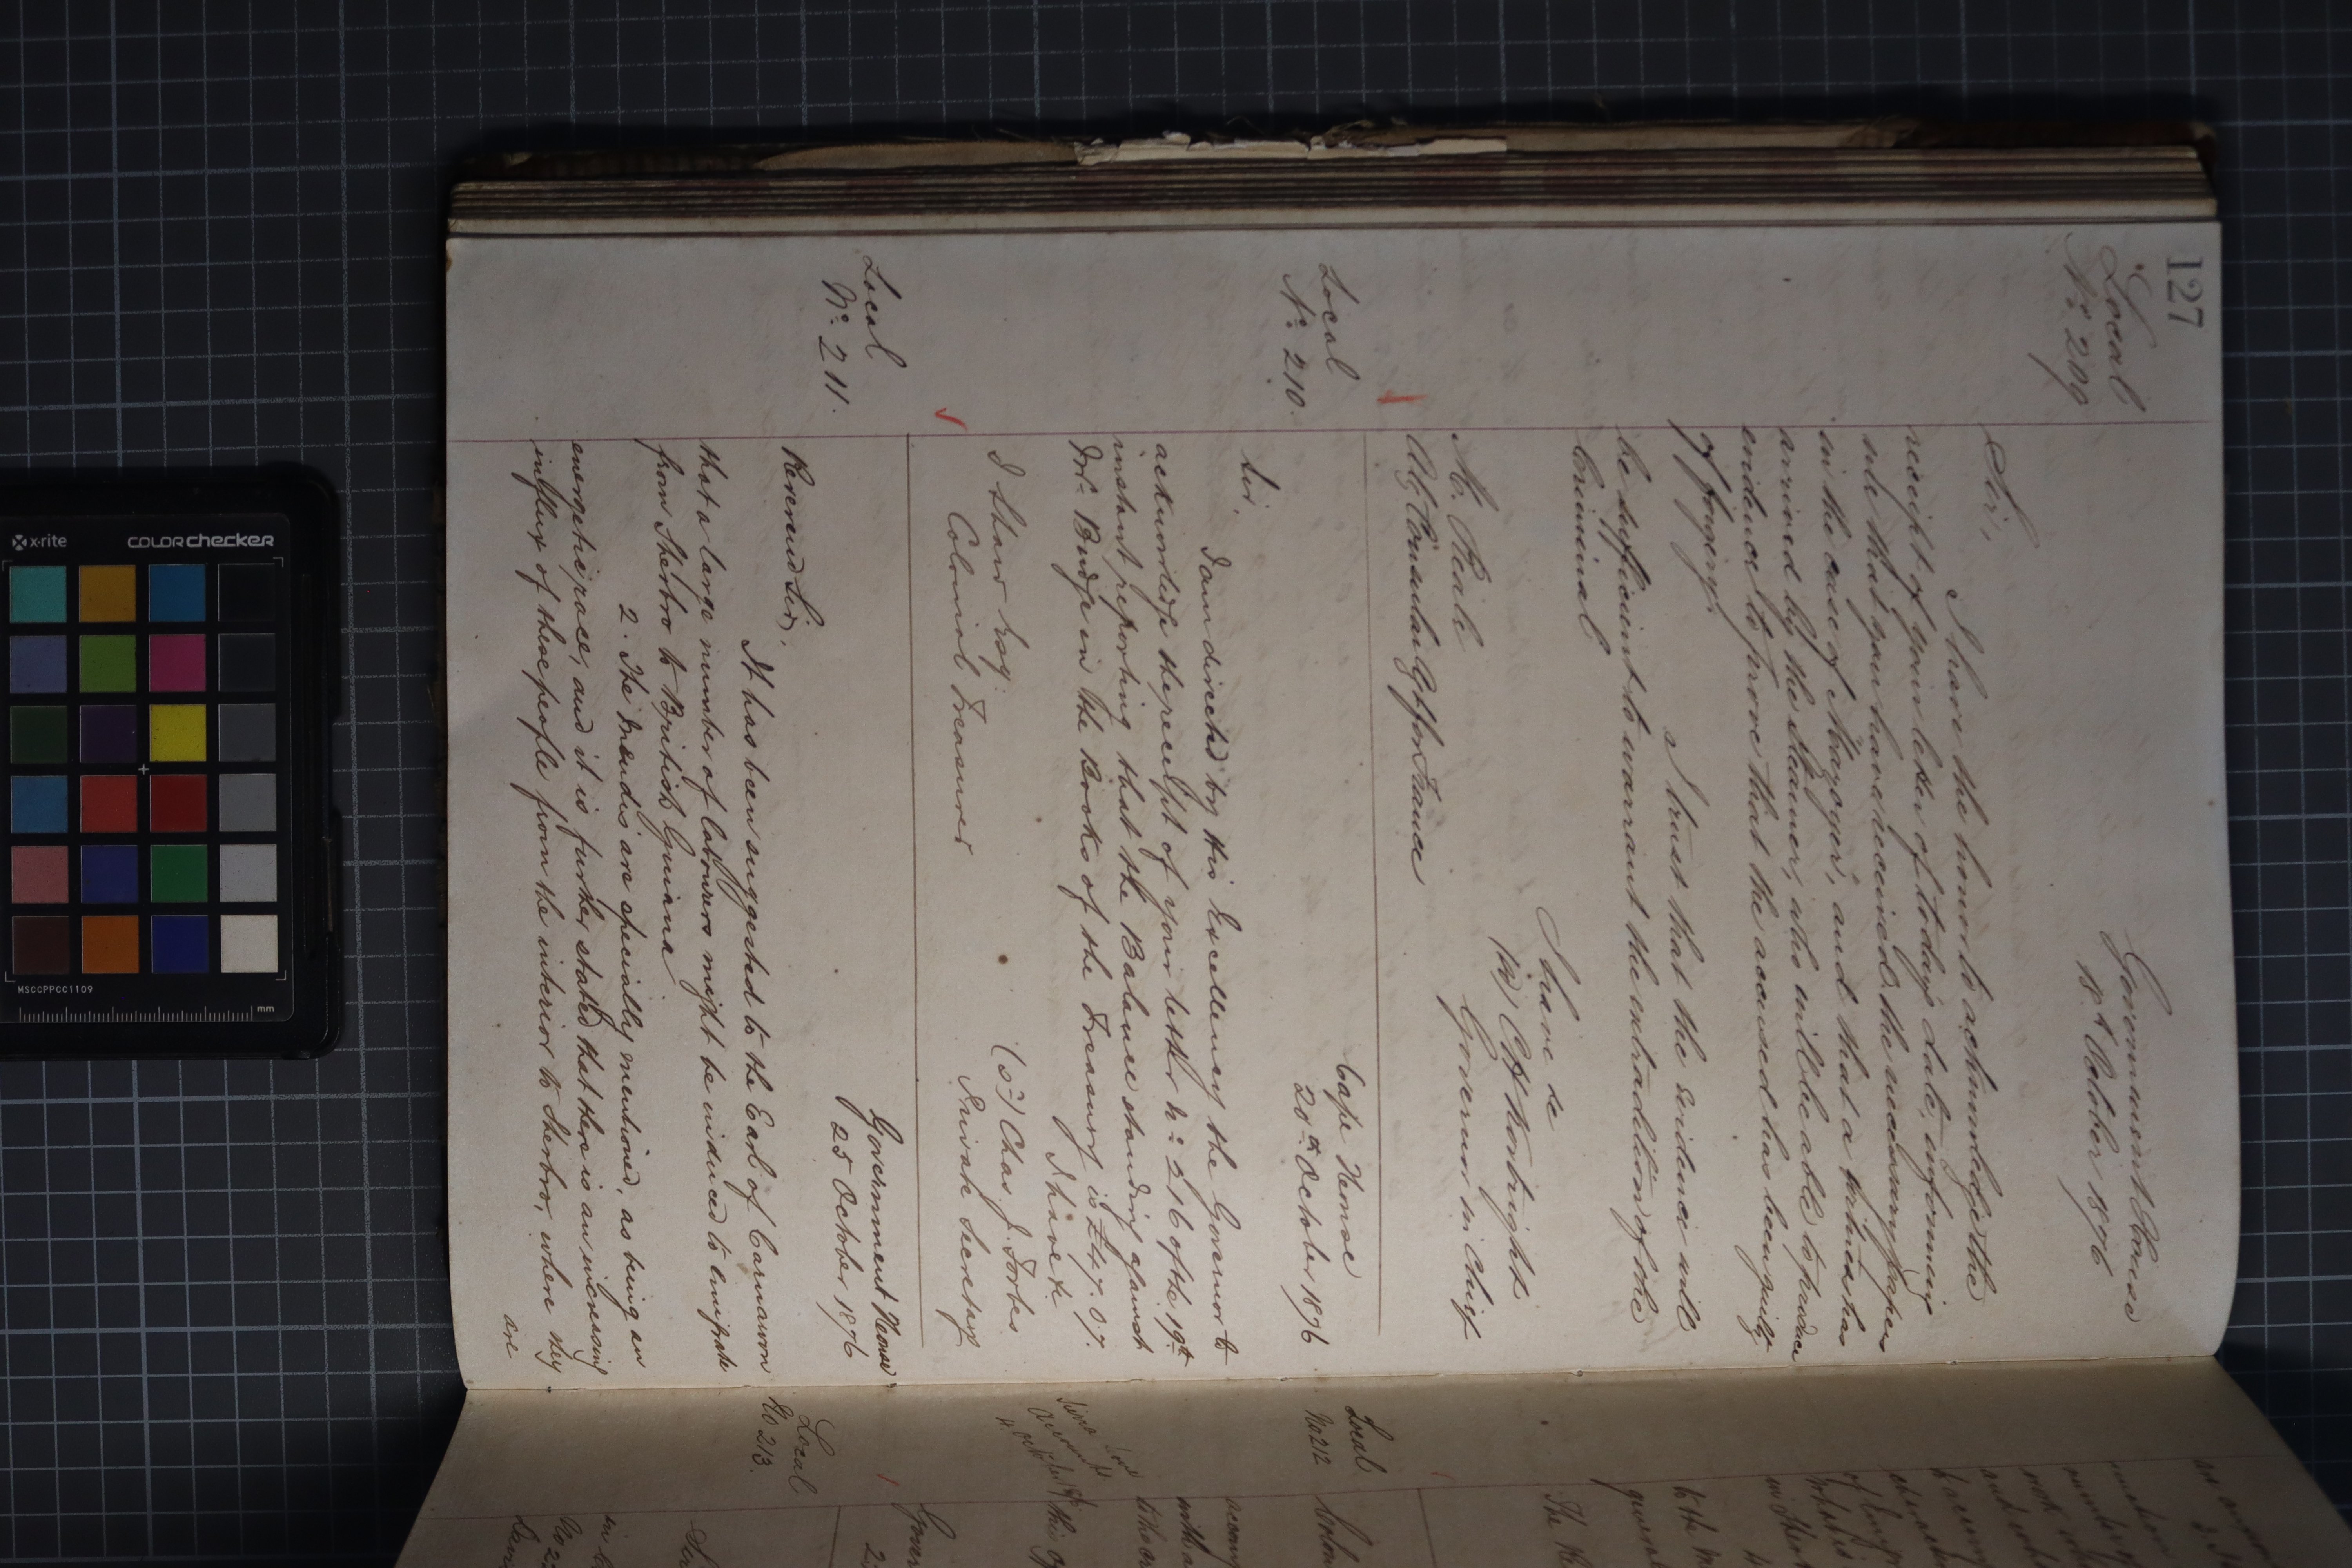 127
Local
No. 209
Government House
18th October 1876
Sir,
I have the honor to acknowledge the
receipt of your letter of to day's date, informing
me that you have received the necessary papers
in the case of and that a witness has
arrived by the steamer, who will be able to produce
evidence to prove that the accused has been guilty
of forgery.
I trust that the evidence will
be sufficient to warrant the extradition of the
Criminal
I have &c
Kortright
Governor in Chief
M.
Consular Agt for France
Local
No. 210.
Cape House
20th October 1876
Sir,
I am directed by His Excellency the Governor to
acknowledge the receipt of your letter No. 516 of the 19th
instant reporting that the Balance standing against
Mr. Budge in the Books of the Treasury is £47.0.7.
I have &c
(sd) Chas. J. Forbes
Private Secretary
I Shaw Esq:
Colonial Treasurer
Local
No. 211.
Government House
25 October 1876
Reverend Sir,
It has been suggested to the Earl of Carnarvon
that a large number of labourers might be induced to emigrate
from Sherbro to British Guiana
2. The Mendis are specially mentioned, as being an
energetic race, and it is further stated that there is an increasing
influx of these people from the interior to Sherbro, where they
are
Local
No 212
Local
No 213.